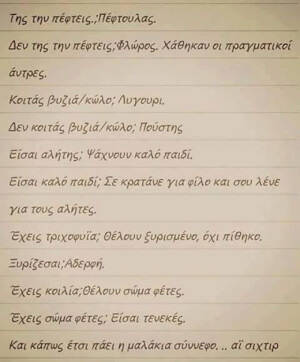 Της την πέφτεις.;Πέφτουλας.
Δεν της την πέφτεις;Φλώρος. Χάθηκαν οι πραγματικοί
άντρες.
Κοιτάς βυζιά/κώλο; Λυγουρι.
Δεν κοιτάς βυζιά/κώλο; Πούστης
Είσαι αλήτης; Ψάχνουν καλό παιδί.
Είσαι καλό παιδί; Σε κρατάνε για φίλο και σου λένε
για τους αλήτες.
Έχεις τριχοφυΐα; Θέλουν ξυρισμένο, όχι πίθηκο.
Ξυρίζεσαι;Αδερφή.
Έχεις κοιλία;Θέλουν σώμα φέτες.
Έχεις σώμα φέτες; Είσαι τενεκές.
Και κάπως έτσι πάει η μαλάκια σύννεφο. .. αϊ σιχτιρ